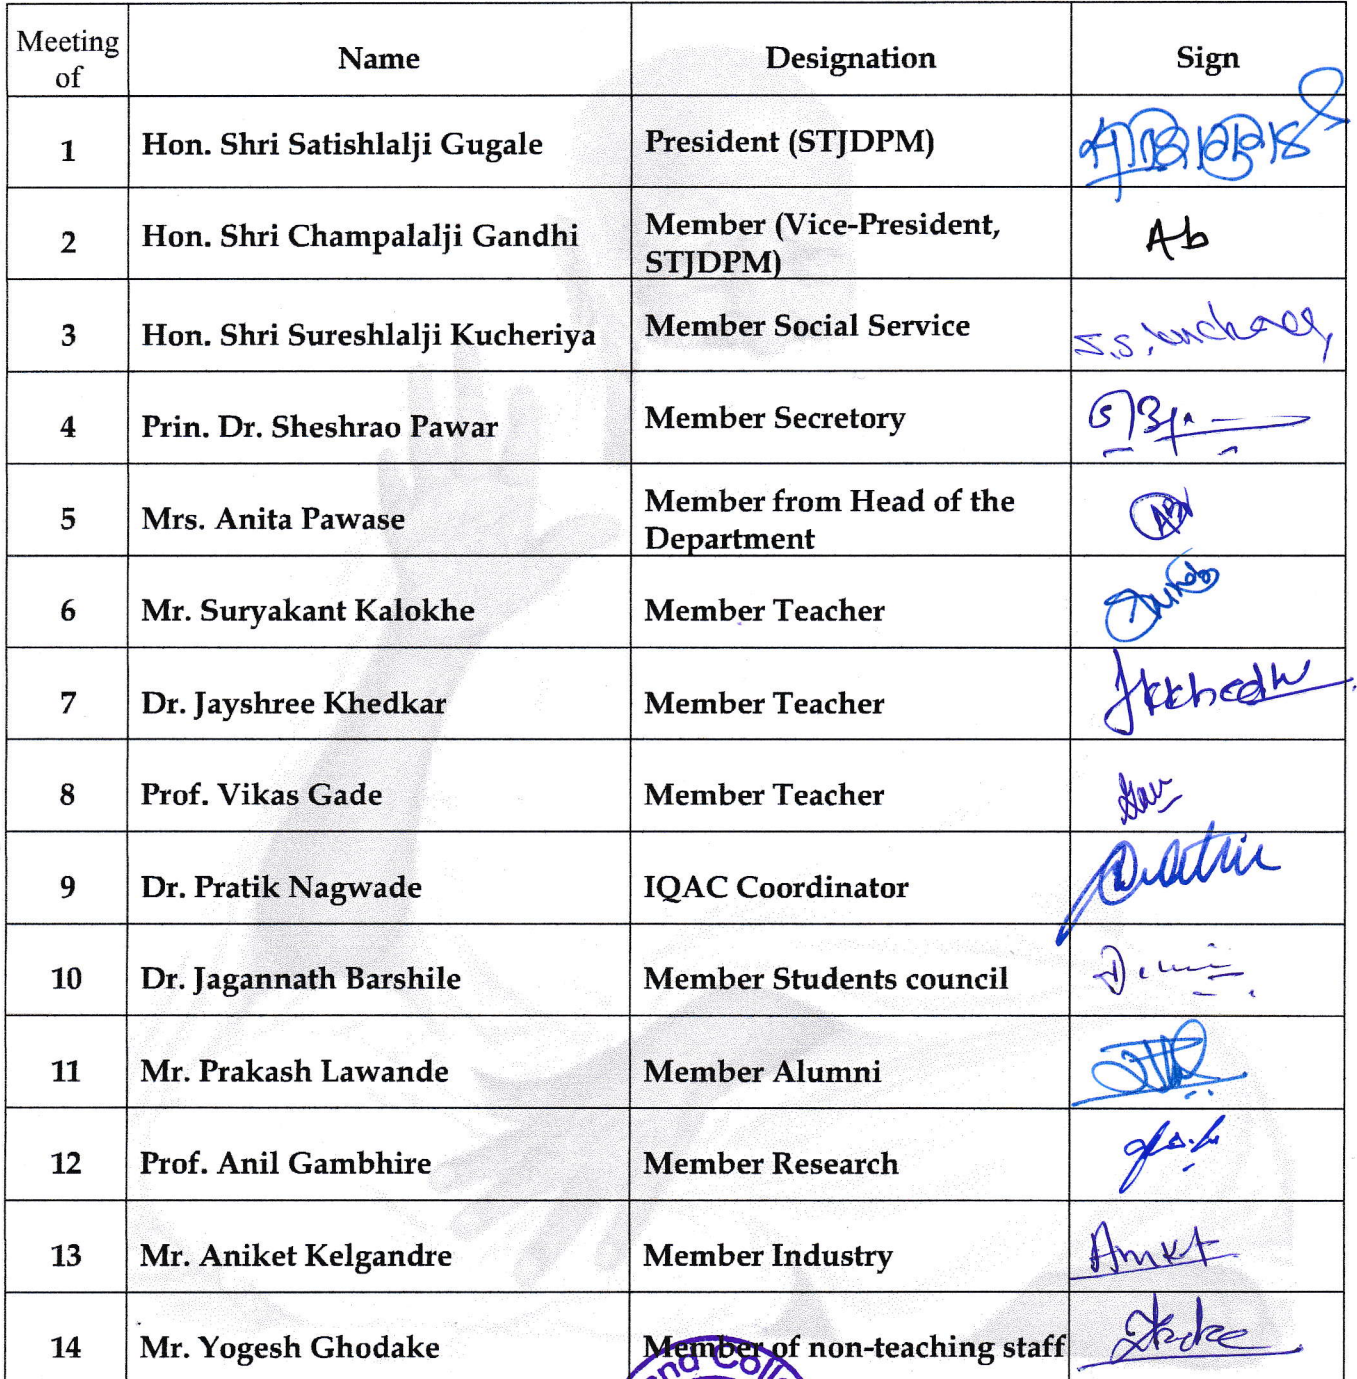 Meeting of Name Designation Sign
1 Hon. Shri Satishlalji Gugale President (STJDPM)
2 Hon. Shri Champalalji Gandhi Member (Vice-President, STJDPM) Ab
3 Hon. Shri Sureshlalji Kucheriya Member Social Service
4 Prin. Dr. Sheshrao Pawar Member Secretory
5 Mrs. Anita Pawase Member from Head of the Department
6 Mr. Suryakant Kalokhe Member Teacher
7 Dr. Jayshree Khedkar Member Teacher
8 Prof. Vikas Gade Member Teacher
9 Dr. Pratik Nagwade IQAC Coordinator
10 Dr. Jagannath Barshile Member Students council
11 Mr. Prakash Lawande Member Alumni
12 Prof. Anil Gambhire Member Research
13 Mr. Aniket Kelgandre Member Industry
14 Mr. Yogesh Ghodake Member of non-teaching staff